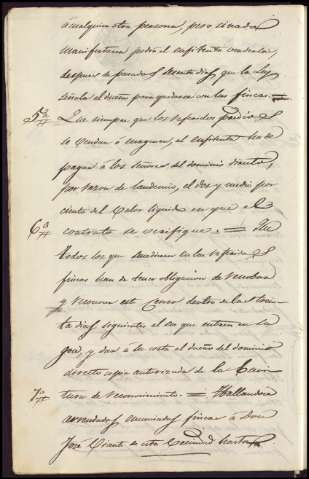 á cualquier otra persona, pero si nada
manifestare, podrá el enfiteuta venderlas,
despues de pasados sesenta dias que la ley
señala al dueño para quedarse con las fincas.=
5ª Que siempre que los referidos predios
se vendan ó enagenen, el enfiteuta ha de
pagar á los señores del dominio directo,
por razon de laudemio, el dos y medio por
ciento del valor liquido en que el
6ª contrato se verifique. =
todos los que sucedieren en las referidas
fincas han de tener obligacion de
y reconocer este censo dentro de los trein-
ta dias siguientes al en que entren en la
y dar á su costa al dueño del dominio
directo copia autorizada de la Escri-
7ª tura de reconocimiento. = Hallandose
arrendadas mencionadas fincas á Don
José de esta Vecindad hasta